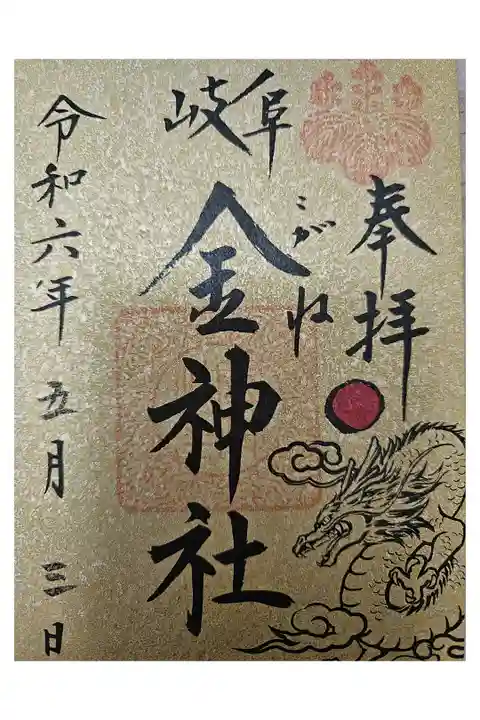 奉拝
岐阜
こがね
金神社
令和六年 五月 三日